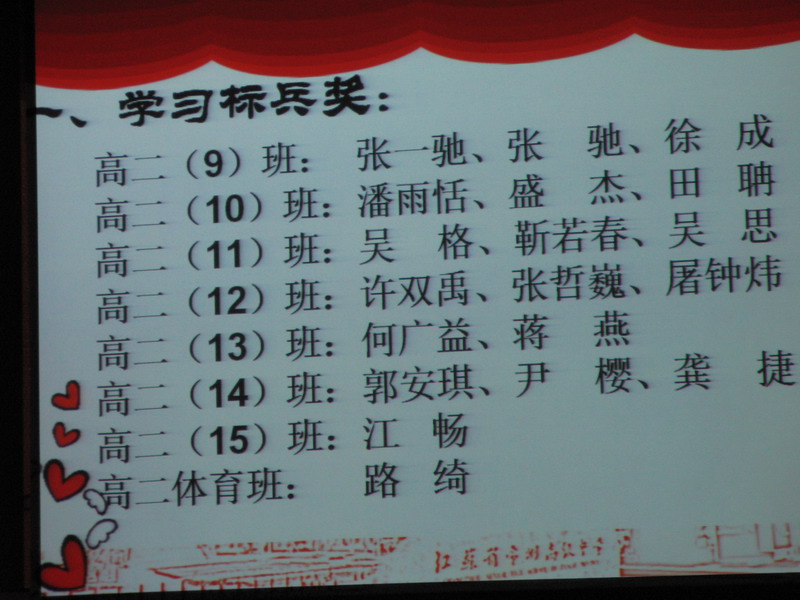 一、学习标兵奖：
高二（9）班： 张一驰、张 驰、徐 成
高二（10）班：潘雨恬、盛 杰、田 聃
高二（11）班：吴 格、靳若春、吴 思
高二（12）班：许双禹、张哲巍、屠钟炜
高二（13）班：何广益、蒋 燕
高二（14）班：郭安琪、尹 樱、龚 捷
高二（15）班：江 畅
高二体育班： 路 绮
江苏省常州高级中学